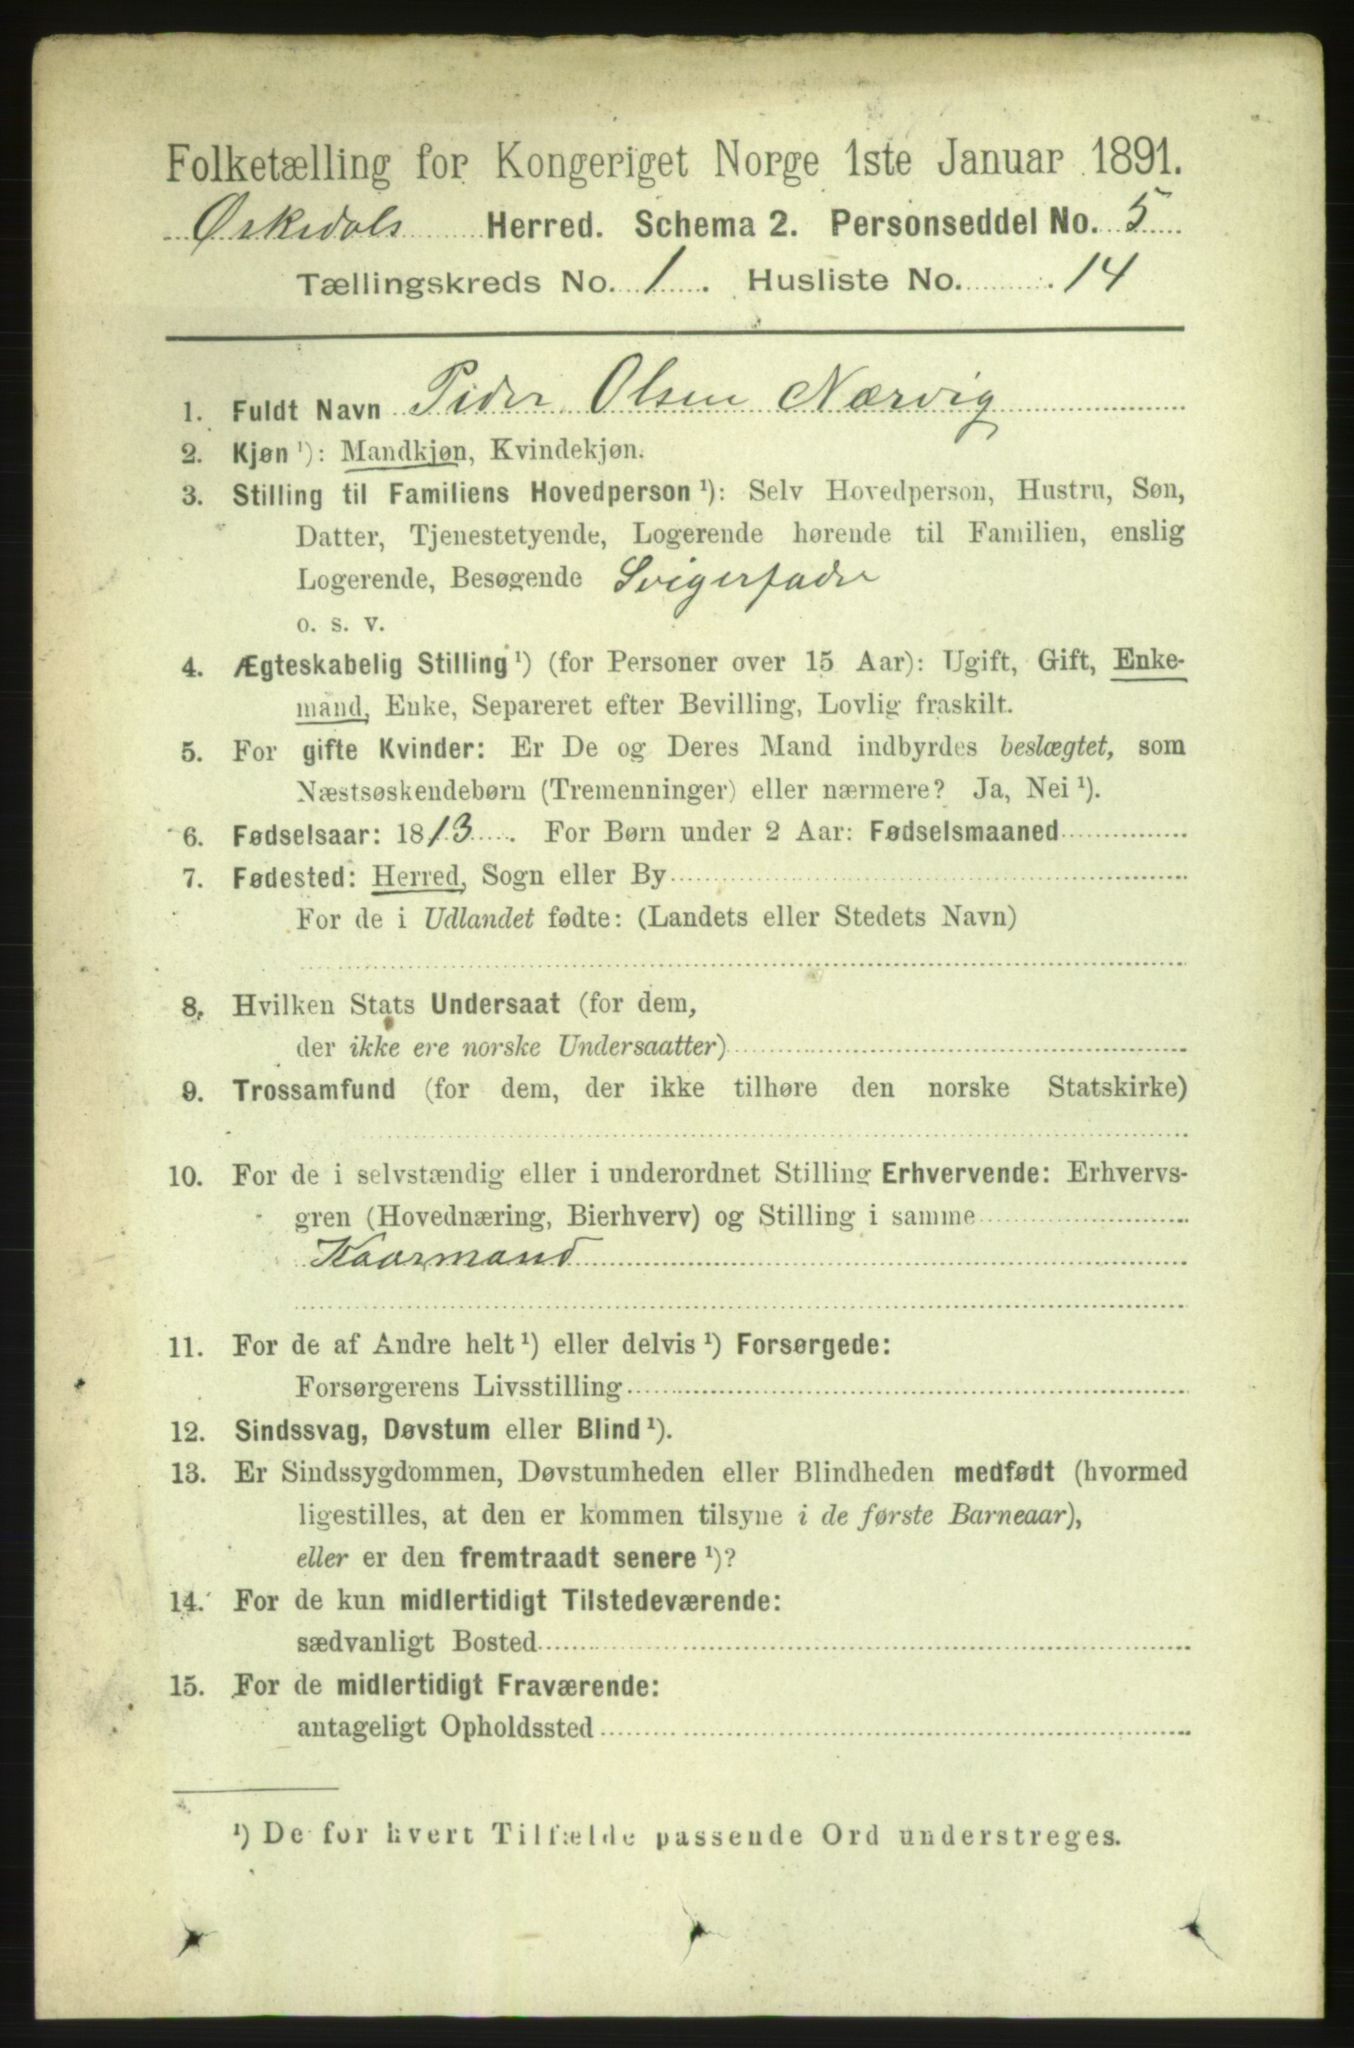 Folketælling for Kongeriget Norge 1ste Januar 1891.
Ørkedals Herred. Schema 2. Personseddel No. 5
Tællingskreds No. 1. Husliste No. 14
1. Fuldt Navn Peder Olsen Nærvig
2. Kjøn ¹): Mandkjøn, Kvindekjøn.
3. Stilling til Familiens Hovedperson ¹): Selv Hovedperson, Hustru, Søn,
Datter, Tjenestetyende, Logerende hørende til Familien, enslig
Logerende, Besøgende Svigerfader
o. s. v.
4. Ægteskabelig Stilling ¹) (for Personer over 15 Aar): Ugift, Gift, Enke-
mand, Enke, Separeret efter Bevilling, Lovlig fraskilt.
5. For gifte Kvinder: Er De og Deres Mand indbyrdes beslægtet, som
Næstsøskendebørn (Tremenninger) eller nærmere? Ja, Nei ¹).
6. Fødselsaar: 1813. For Børn under 2 Aar: Fødselsmaaned
7. Fødested: Herred, Sogn eller By
For de i Udlandet fødte: (Landets eller Stedets Navn)
8. Hvilken Stats Undersaat (for dem,
der ikke ere norske Undersaatter)
9. Trossamfund (for dem, der ikke tilhøre den norske Statskirke)
10. For de i selvstændig eller i underordnet Stilling Erhvervende: Erhvervs-
gren (Hovednæring, Bierhverv) og Stilling i samme
Kaarmand
11. For de af Andre helt ¹) eller delvis ¹) Forsørgede:
Forsørgerens Livsstilling
12. Sindssvag, Døvstum eller Blind ¹).
13. Er Sindssygdommen, Døvstumheden eller Blindheden medfødt (hvormed
ligestilles, at den er kommen tilsyne i de første Barneaar),
eller er den fremtraadt senere ¹)?
14. For de kun midlertidigt Tilstedeværende:
sædvanligt Bosted
15. For de midlertidigt Fraværende:
antageligt Opholdssted
¹) De for hvert Tilfælde passende Ord understreges.